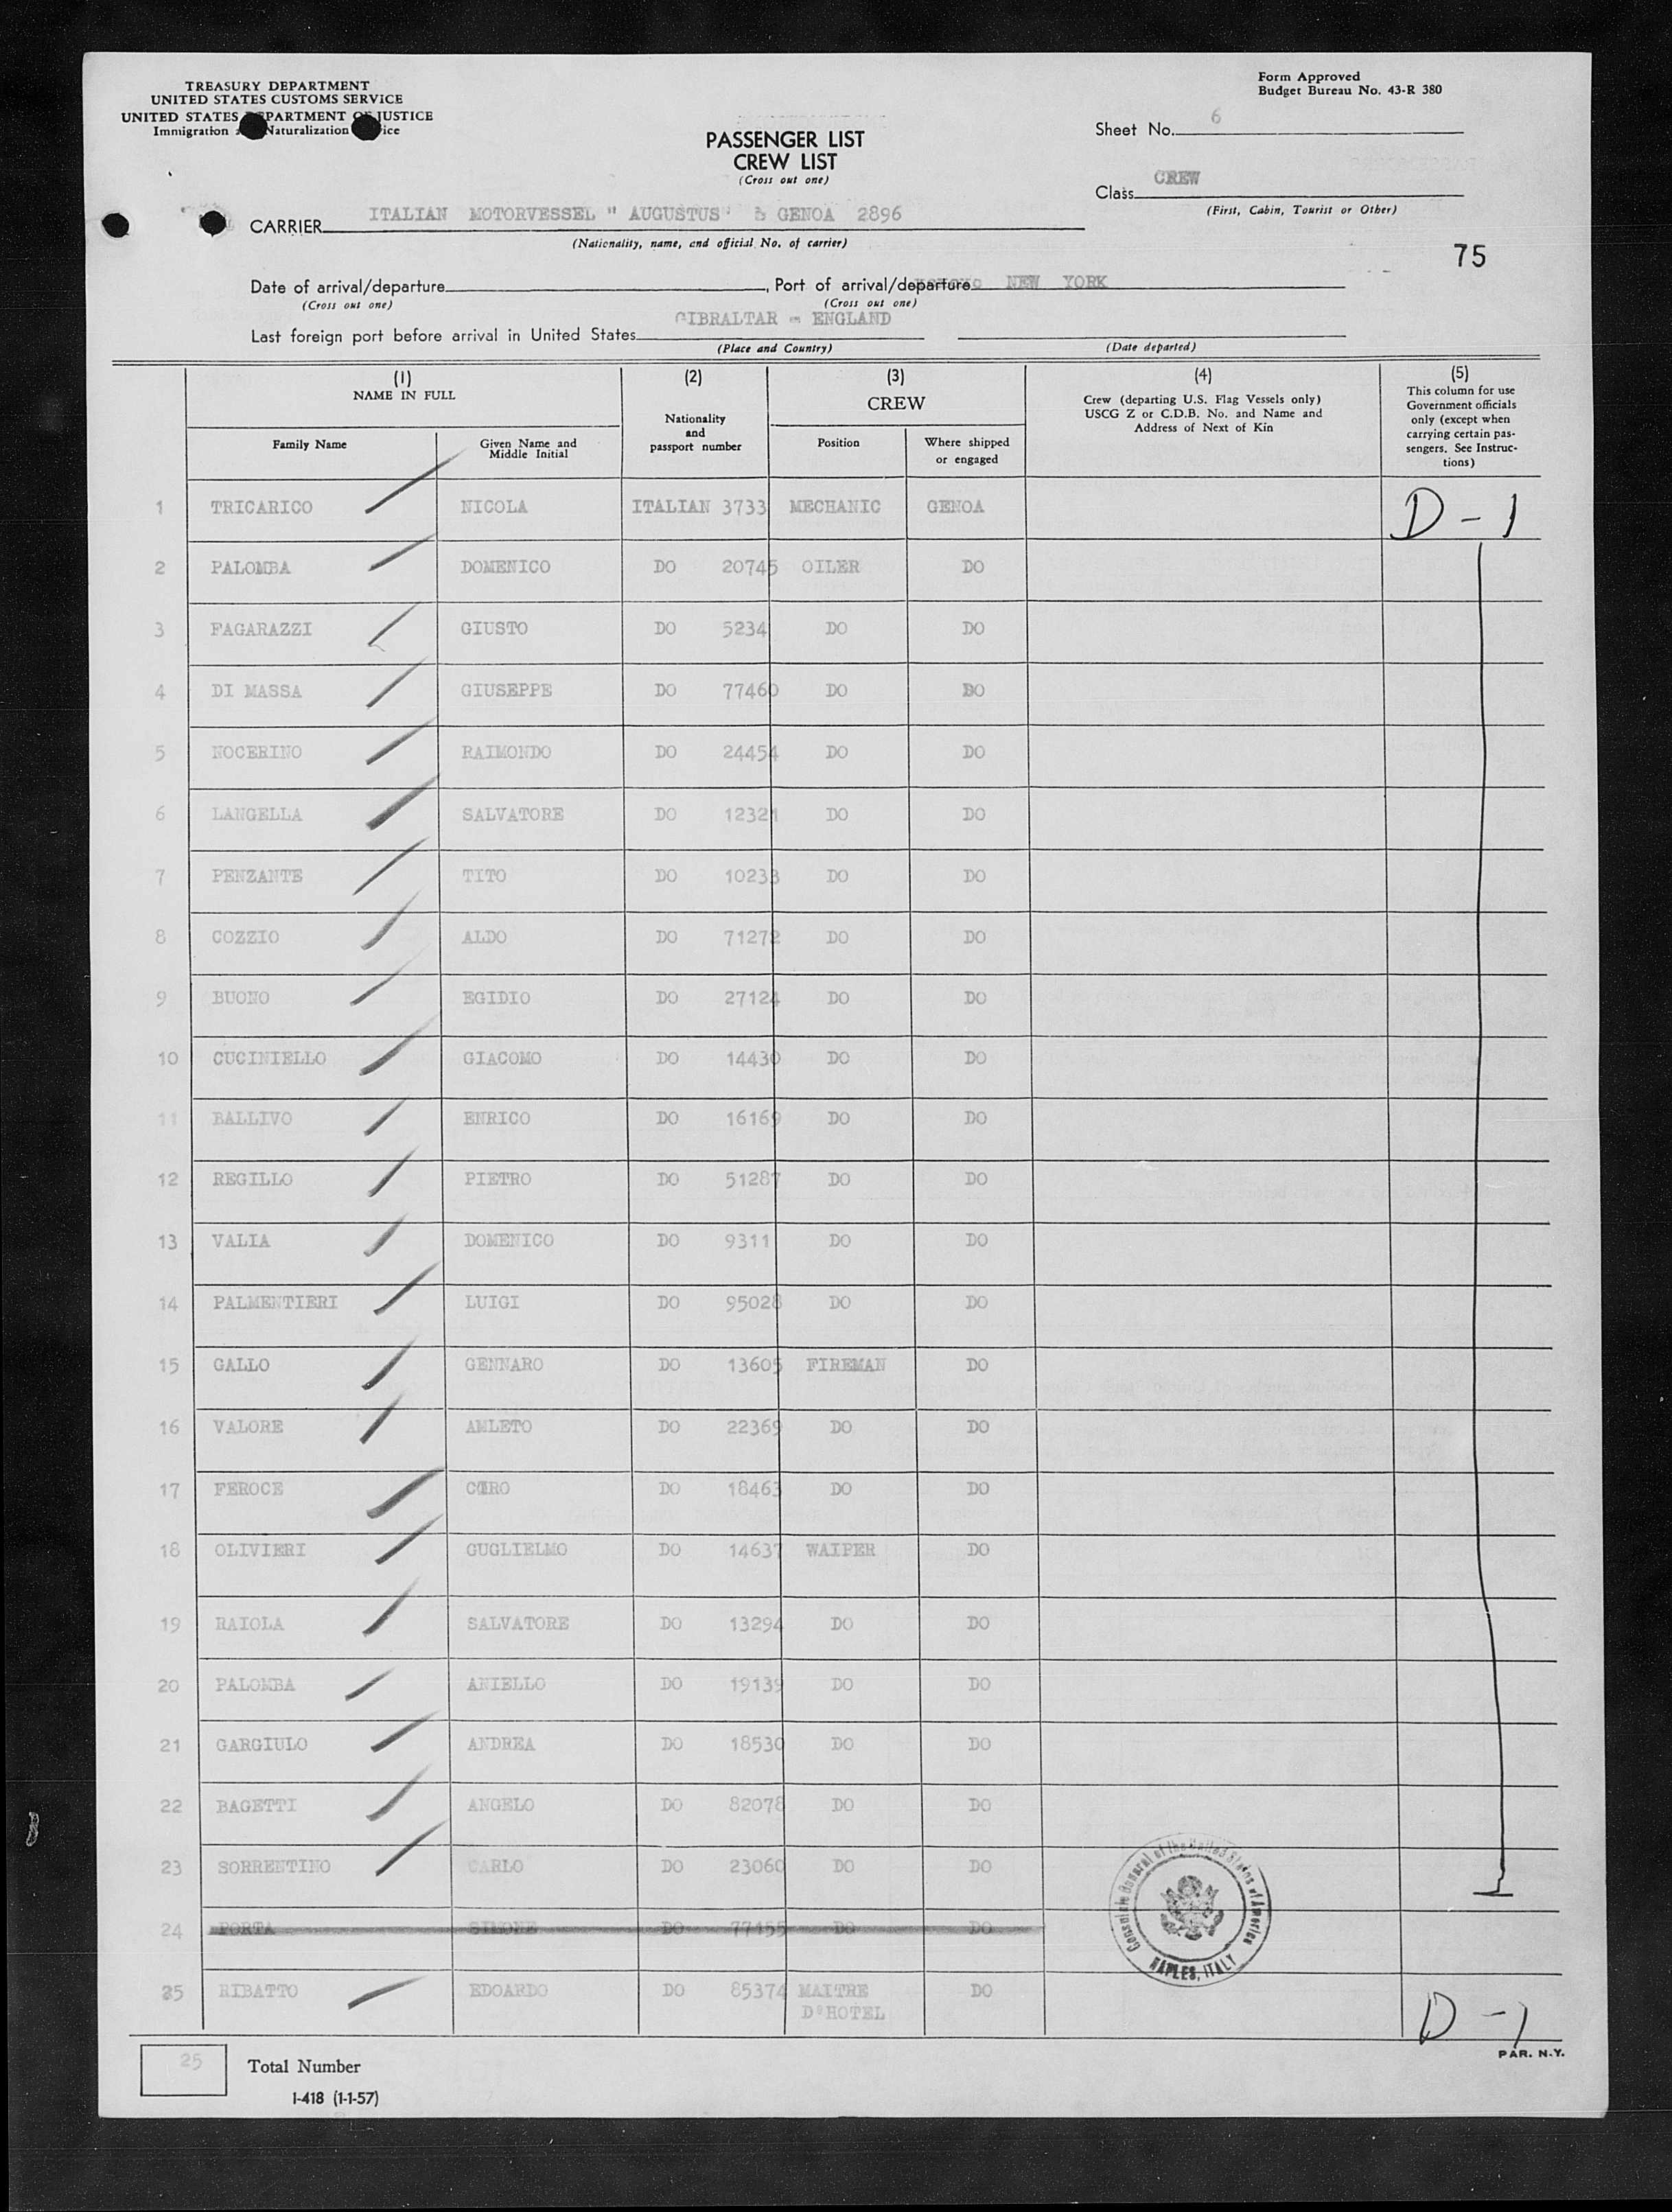 TREASURY DEPARTMENT
UNITED STATES CUSTOMS SERVICE
UNITED STATES DEPARTMENT OF JUSTICE
Immigration Naturalization
Form Approved
Budget Bureau No. 43-R 380
PASSENGER LIST
CREW LIST
(Cross out one)
Sheet No. 6
Class CREW
(First, Cabin, Tourist or Other)
CARRIER ITALIAN MOTORVESSEL " AUGUSTUS" GENOA 2896
(Nationality, name, and official No. of carrier)
75
Date of arrival/departure , Port of arrival/departure NEW YORK
(Cross out one) (Cross out one)
Last foreign port before arrival in United States GIBRALTAR - ENGLAND
(Place and Country) (Date departed)
(1) (2) (3) (4) (5)
NAME IN FULL
Family Name
Given Name and Middle Initial
Nationality and passport number
CREW
Position
Where shipped or engaged
Crew (departing U.S. Flag Vessels only)
USCG Z or C.D.B. No. and Name and
Address of Next of Kin
This column for use
Government officials
only (except when
carrying certain pas-
sengers. See Instruc-
tions)
1 TRICARICO NICOLA ITALIAN 3733 MECHANIC GENOA D-1
2 PALOMBA DOMENICO DO 20745 OILER DO
3 FAGARAZZI GIUSTO DO 5234 DO DO
4 DI MASSA GIUSEPPE DO 77460 DO DO
5 NOCERINO RAIMONDO DO 24454 DO DO
6 LANGELLA SALVATORE DO 12321 DO DO
7 PENZANTE TITO DO 10233 DO DO
8 COZZIO ALDO DO 71272 DO DO
9 BUONO EGIDIO DO 27124 DO DO
10 CUCINIELLO GIACOMO DO 14430 DO DO
11 BALLIVO ENRICO DO 16169 DO DO
12 REGILLO PIETRO DO 51287 DO DO
13 VALIA DOMENICO DO 9311 DO DO
14 PALMENTIERI LUIGI DO 95028 DO DO
15 GALLO GENNARO DO 13605 FIREMAN DO
16 VALORE AMLETO DO 22369 DO DO
17 FEROCE CIRO DO 18463 DO DO
18 OLIVIERI GUGLIELMO DO 14637 WAIPER DO
19 RAIOLA SALVATORE DO 13294 DO DO
20 PALOMBA ANIELLO DO 19139 DO DO
21 GARGIULO ANDREA DO 18530 DO DO
22 BAGETTI ANGELO DO 82078 DO DO
23 SORRENTINO CARLO DO 23060 DO DO
24 PORTA SIMONE DO 77455 DO DO
25 RIBATTO EDOARDO DO 85374 MAITRE DO
D'HOTEL
D-1
Consulate General of the United States of America
NAPLES, ITALY
PAR. N.Y.
25 Total Number
I-418 (1-1-57)